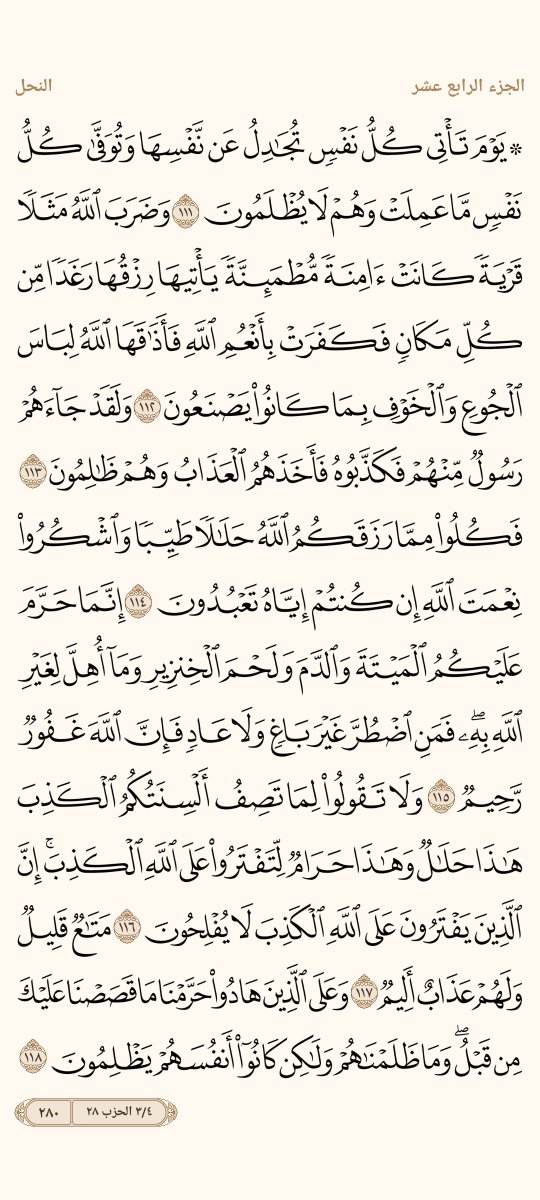 الجزء الرابع عشر
النحل
۞ يَوْمَ تَأْتِى كُلُّ نَفْسٍ تُجَـٰدِلُ عَن نَّفْسِهَا وَتُوَفَّىٰ كُلُّ
نَفْسٍ مَّا عَمِلَتْ وَهُمْ لَا يُظْلَمُونَ ١١١ وَضَرَبَ ٱللَّهُ مَثَلًا
قَرْيَةً كَانَتْ ءَامِنَةً مُّطْمَئِنَّةً يَأْتِيهَا رِزْقُهَا رَغَدًا مِّن
كُلِّ مَكَانٍ فَكَفَرَتْ بِأَنْعُمِ ٱللَّهِ فَأَذَٰقَهَا ٱللَّهُ لِبَاسَ
ٱلْجُوعِ وَٱلْخَوْفِ بِمَا كَانُوا۟ يَصْنَعُونَ ١١٢ وَلَقَدْ جَآءَهُمْ
رَسُولٌ مِّنْهُمْ فَكَذَّبُوهُ فَأَخَذَهُمُ ٱلْعَذَابُ وَهُمْ ظَـٰلِمُونَ ١١٣
فَكُلُوا۟ مِمَّا رَزَقَكُمُ ٱللَّهُ حَلَـٰلًا طَيِّبًا وَٱشْكُرُوا۟
نِعْمَتَ ٱللَّهِ إِن كُنتُمْ إِيَّاهُ تَعْبُدُونَ ١١٤ إِنَّمَا حَرَّمَ
عَلَيْكُمُ ٱلْمَيْتَةَ وَٱلدَّمَ وَلَحْمَ ٱلْخِنزِيرِ وَمَآ أُهِلَّ لِغَيْرِ
ٱللَّهِ بِهِۦ ۖ فَمَنِ ٱضْطُرَّ غَيْرَ بَاغٍ وَلَا عَادٍ فَإِنَّ ٱللَّهَ غَفُورٌ
رَّحِيمٌ ١١٥ وَلَا تَقُولُوا۟ لِمَا تَصِفُ أَلْسِنَتُكُمُ ٱلْكَذِبَ
هَـٰذَا حَلَـٰلٌ وَهَـٰذَا حَرَامٌ لِّتَفْتَرُوا۟ عَلَى ٱللَّهِ ٱلْكَذِبَ ۚ إِنَّ
ٱلَّذِينَ يَفْتَرُونَ عَلَى ٱللَّهِ ٱلْكَذِبَ لَا يُفْلِحُونَ ١١٦ مَتَـٰعٌ قَلِيلٌ
وَلَهُمْ عَذَابٌ أَلِيمٌ ١١٧ وَعَلَى ٱلَّذِينَ هَادُوا۟ حَرَّمْنَا مَا قَصَصْنَا عَلَيْكَ
مِن قَبْلُ ۖ وَمَا ظَلَمْنَـٰهُمْ وَلَـٰكِن كَانُوٓا۟ أَنفُسَهُمْ يَظْلِمُونَ ١١٨
٣/٤ الحزب ٢٨
٢٨٠